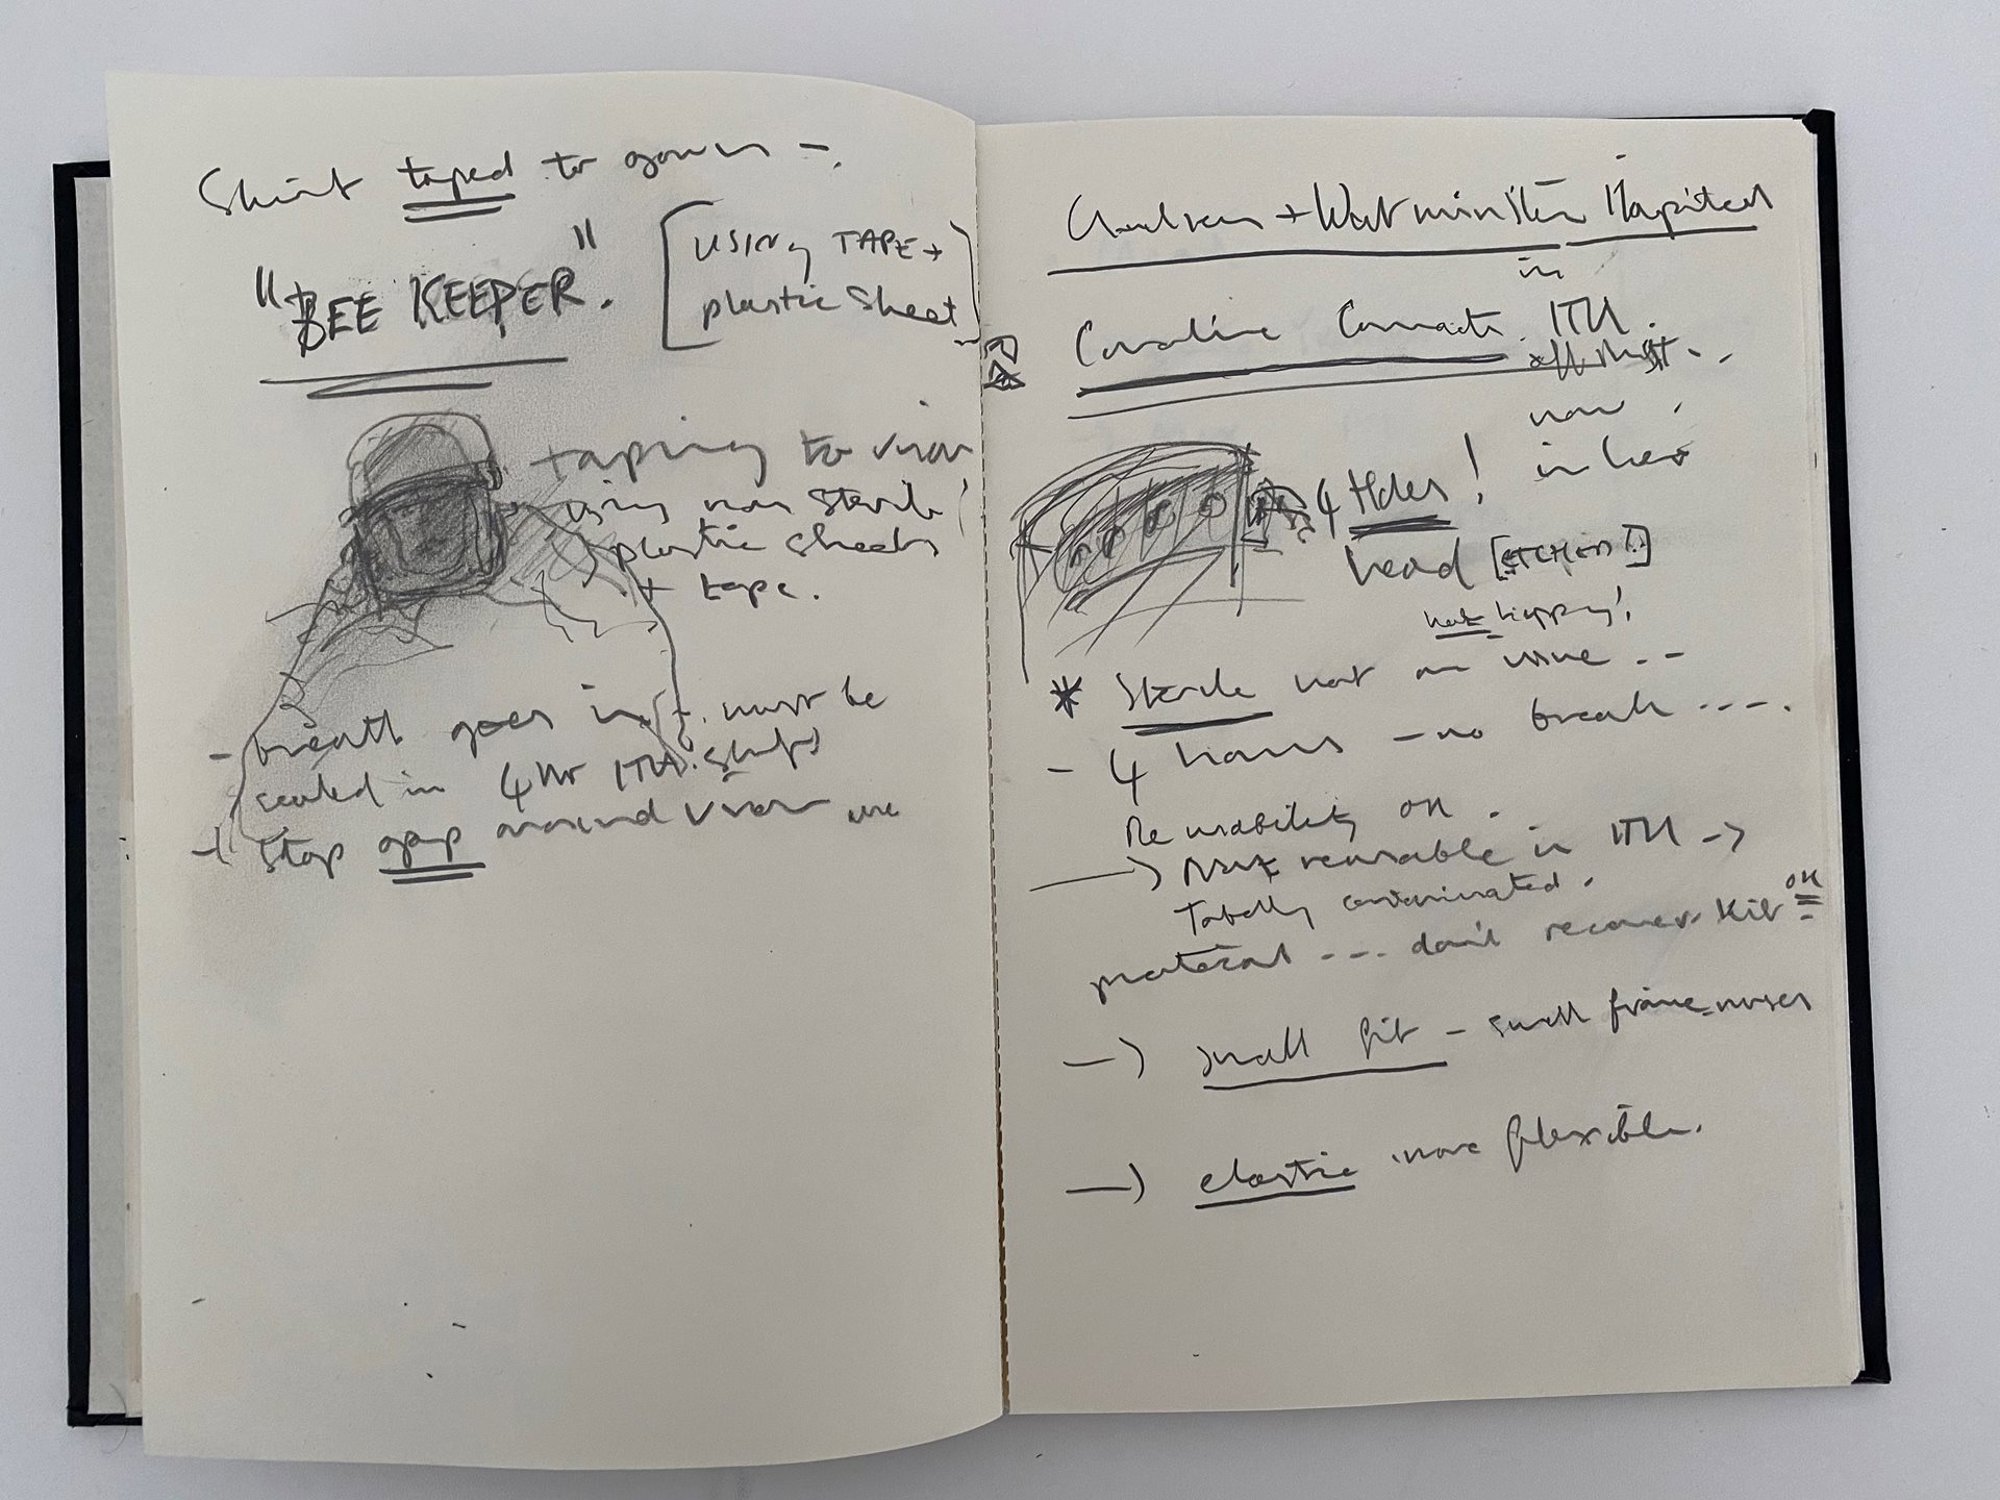 taped to gown -.
"BEE KEEPER."
[USING TAPE +
plastic sheet]
taping to visor
using non sterile
plastic sheets
+ tape.
- breath goes in, must be
sealed in 4 hr ITU. shifts
stop gap around visor
Chelsea + Westminster Hospital
in
Caroline ITU.
now
4 Holes!
head
not happy!
* Sterile not an issue ..
- 4 hours - no break ....
Reusability OK.
→ Not reusable in ITU →
Totally contaminated.
material ... don't recover kit OK
→ small fit - small frame nurses
→ elastic more flexible.